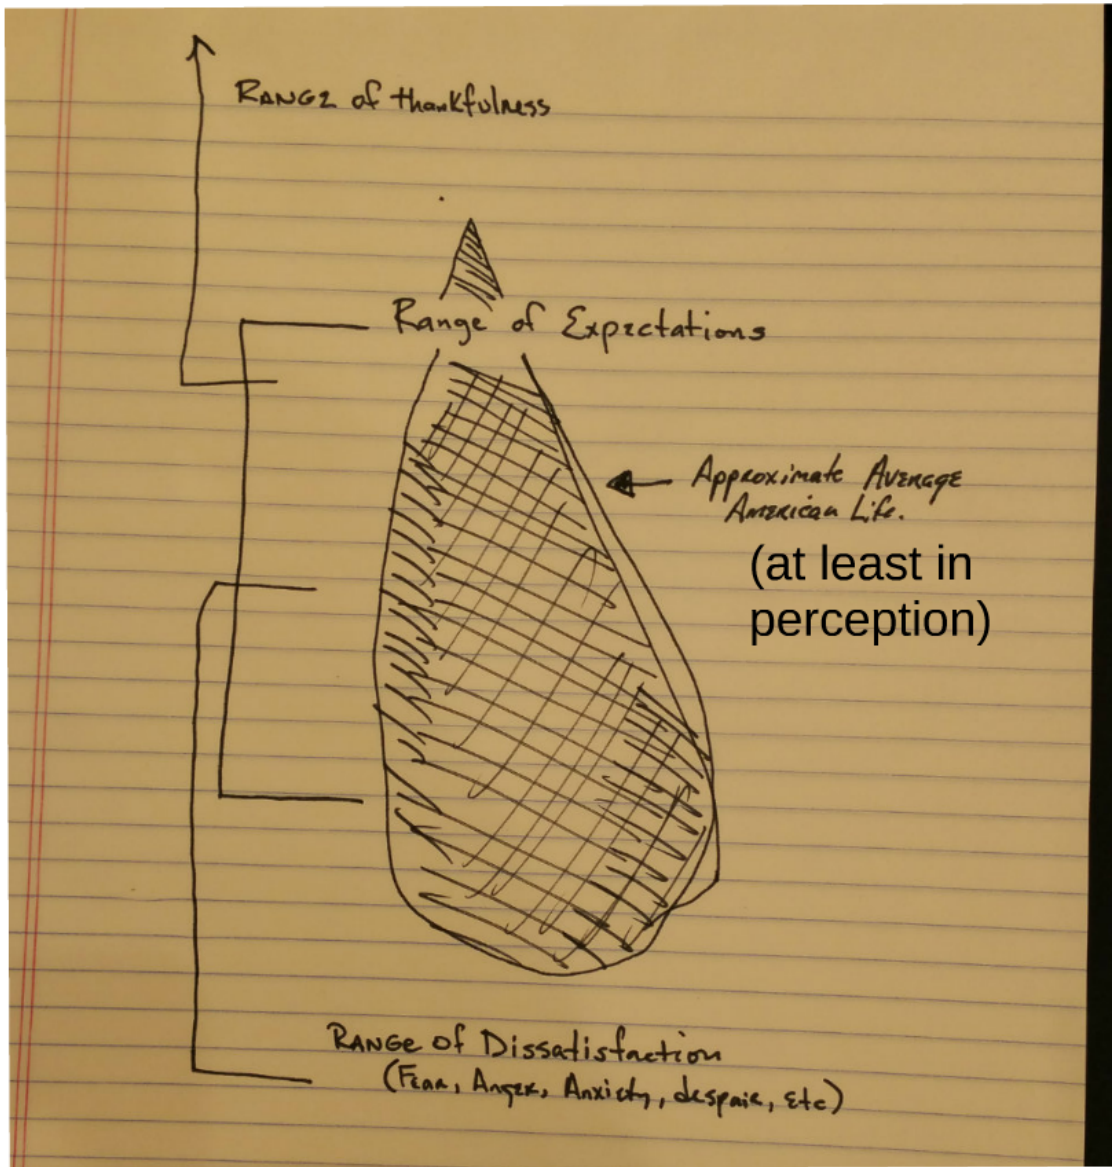 Range of thankfulness
Range of Expectations
Approximate Average
American Life.
(at least in
perception)
Range of Dissatisfaction
(Fear, Anger, Anxiety, despair, Etc)